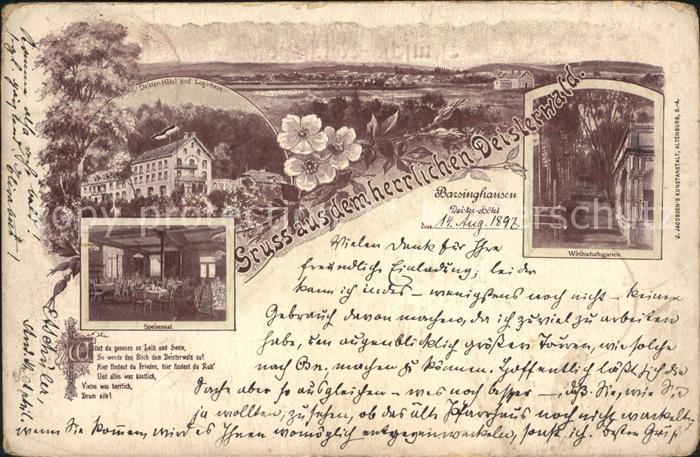 Deister-Hôtel und Logirhaus
Gruss aus dem herrlichen Deisterwald.
Barsinghausen
Deister-Hôtel
den 14. Aug. 1897
Wirthschaftsgarten
C. JACOBSEN'S KUNSTANSTALT, ALTENBURG, S.-A.
Speisesaal
Willst du genesen an Leib und Seele,
So wende den Blick dem Deisterwald zu!
Hier findest du Frieden, hier findest du Ruh'
Und alles was köstlich,
Vieles was herrlich,
Drum eile!
Vielen Dank für Ihre
freundliche Einladung; leider
kann ich indes – wenigstens noch nicht – keinen
Gebrauch davon machen, da ich zuviel zu arbeiten
habe, um augenblicklich größere Touren, wie solche
nach machen zu können. Hoffentlich läßt sich die
Sache aber so ausgleichen – was noch besser –, daß Sie, wie Sie
ja wollten, zusehen, ob das alte Pfarrhaus noch nicht wackelt,
wenn Sie kommen, wird es Ihnen womöglich entgegenwackeln, sonst ich. Besten Gruß